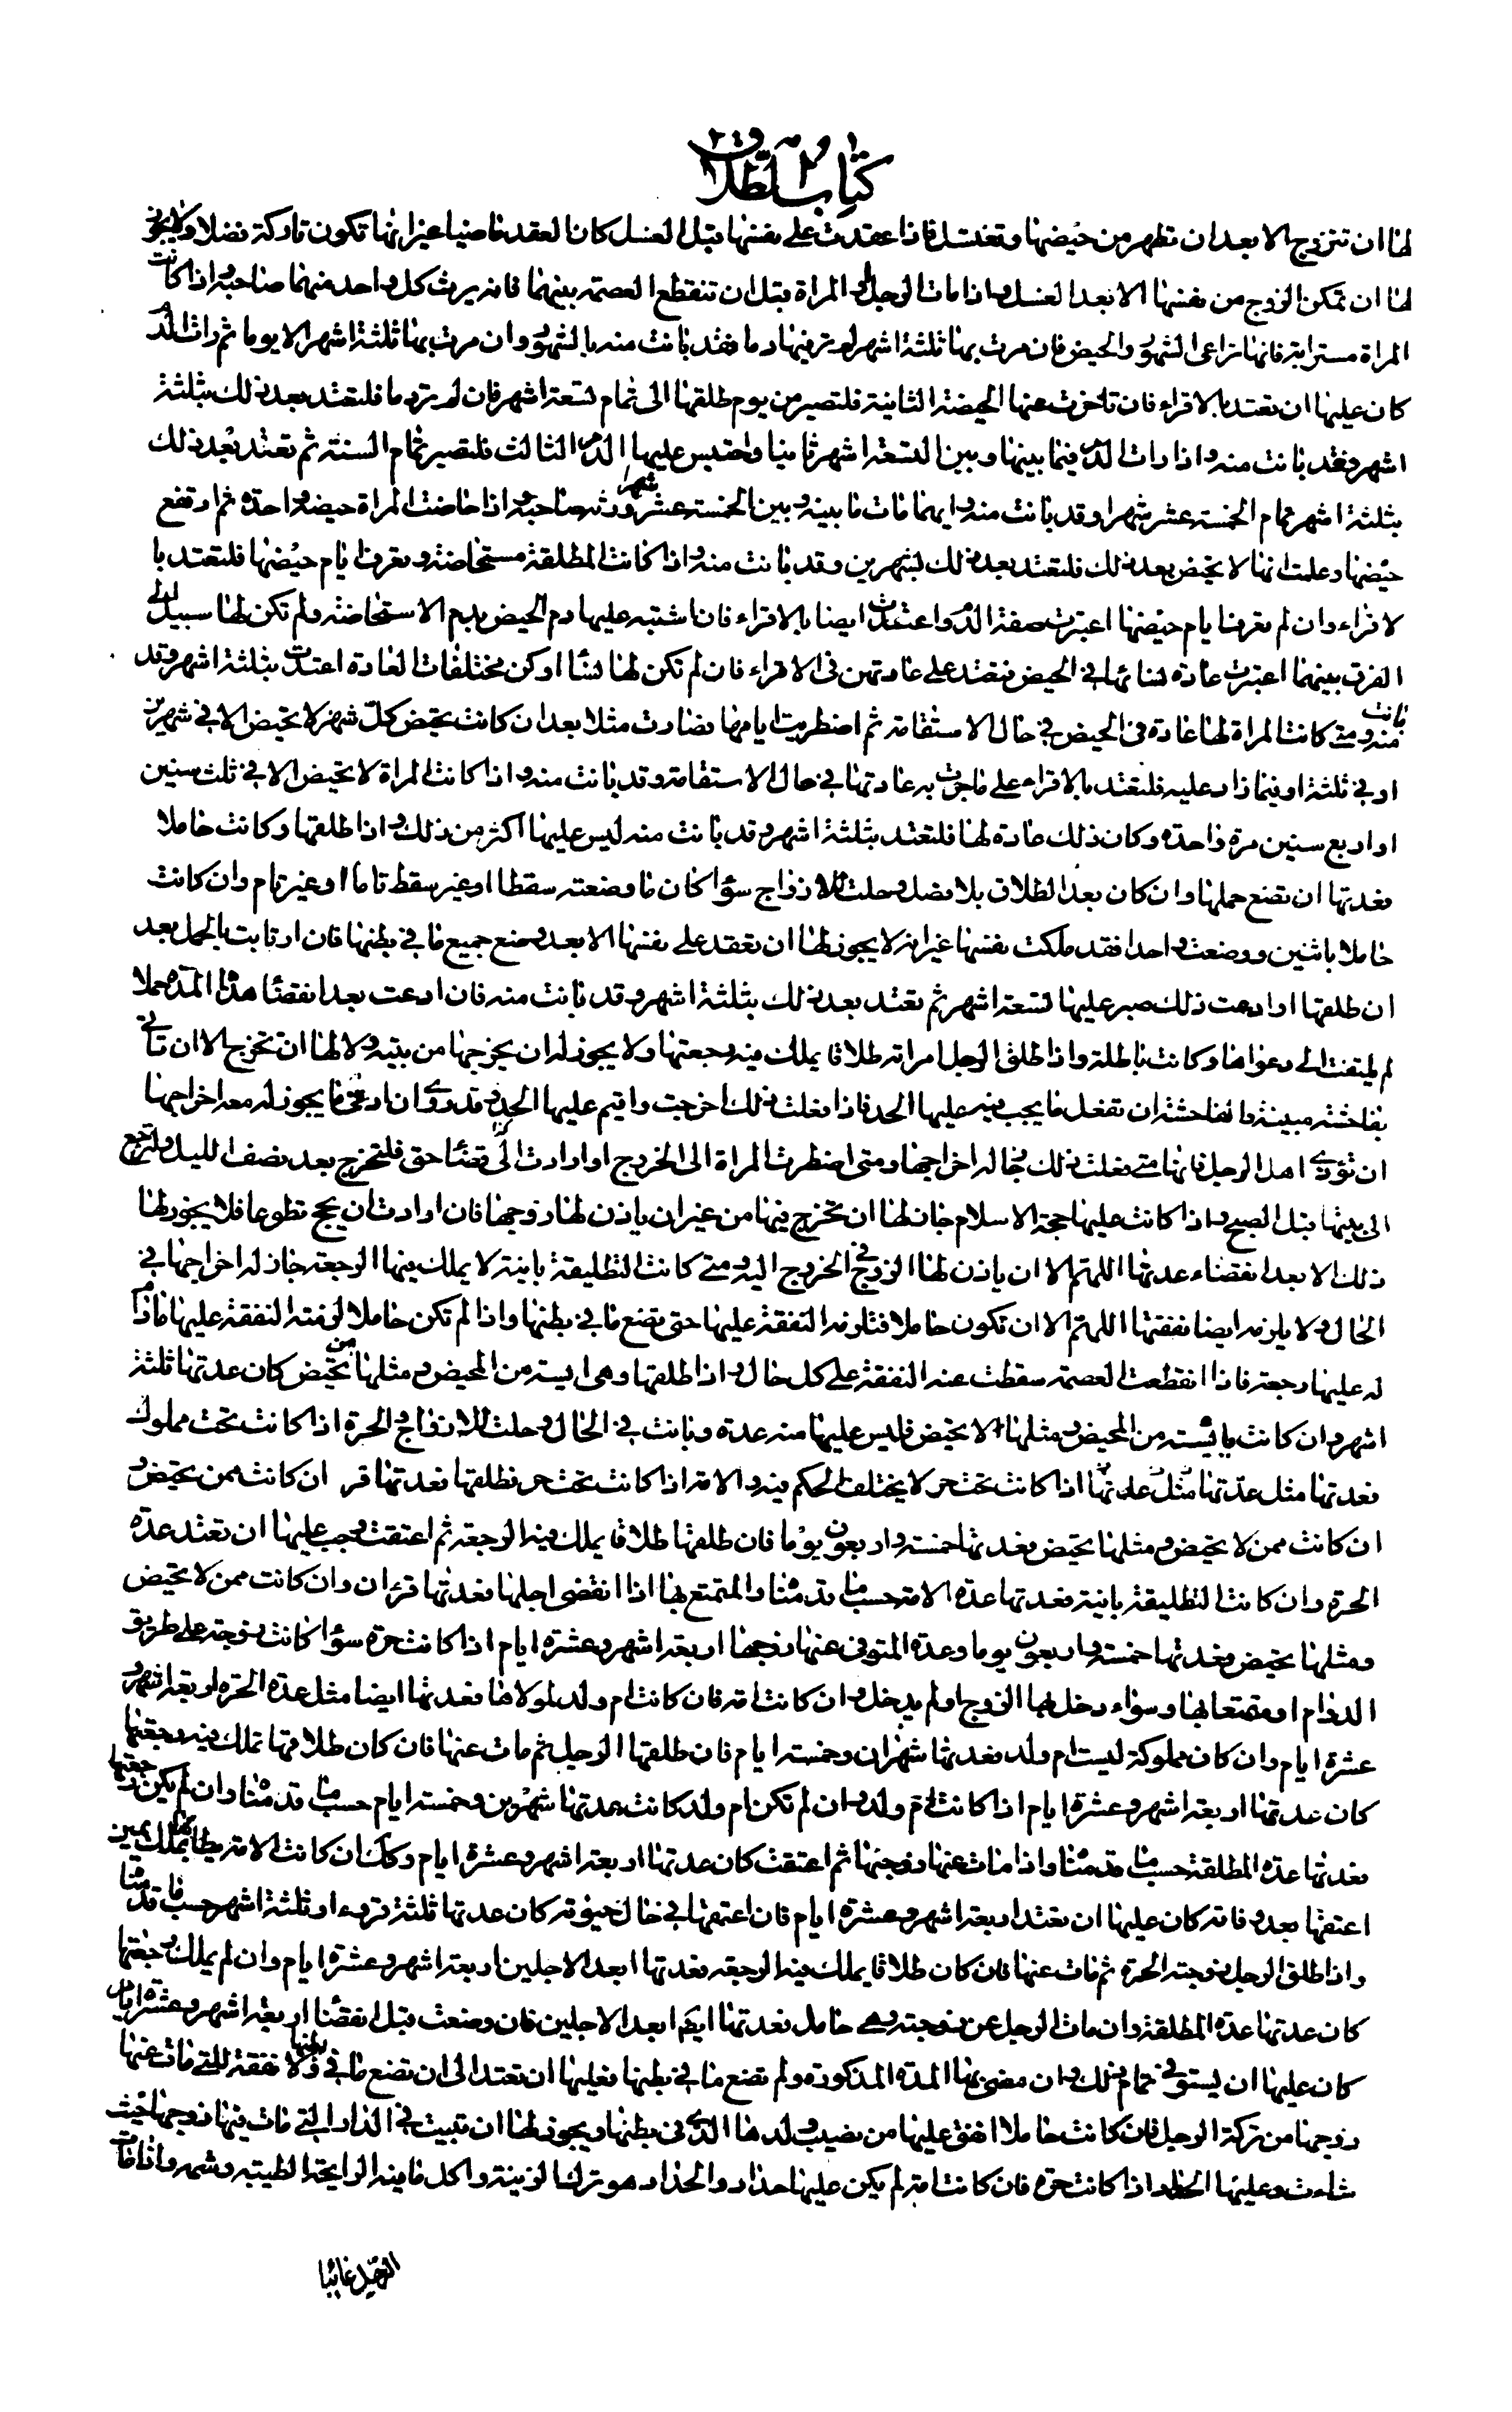 كتاب الطلاق
لها ان تتزوج الا بعد ان تطهر من حيضها وتغتسل فاذا عقدت على نفسها قبل الغسل كان العقد ماضيا غير انها تكون تاركة فضلا ولا يجوز
لها ان تمكن الزوج من نفسها الا بعد الغسل واذا مات الرجل او المراة قبل ان تنقطع العصمة بينهما فانه يرث كل واحد منهما صاحبه واذا كانت
المراة مسترابة فانها تراعى الشهور والحيض فان مرت بها ثلثة اشهر لم تر فيها دما فقد بانت منه بالشهور وان مرت بها ثلثة اشهر الا يوما ثم رات الدم
كان عليها ان تعتد بالاقراء فان تاخرت عنها الحيضة الثانية فلتصبر من يوم طلقها الى تمام تسعة اشهر فان لم تر دما فلتعتد بعد ذلك بثلثة
اشهر وقد بانت منه واذا رات الدم فيما بينها وبين التسعة اشهر ثانيا واحتبس عليها الدم الثالث فلتصبر تمام السنة ثم تعتد بعد ذلك
بثلثة اشهر تمام الخمسة عشر شهرا وقد بانت منه وايهما مات ما بينه وبين الخمسة عشر شهرا ورثه صاحبه واذا حاضت المراة حيضة واحدة ثم ارتفع
حيضها وعلمت انها لا تحيض بعد ذلك فلتعتد بعد ذلك بشهرين وقد بانت منه واذا كانت المطلقة مستحاضة وتعرف ايام حيضها فلتعتد با
لاقراء وان لم تعرف ايام حيضها اعتبرت صفة الدم واعتدت ايضا بالاقراء فان اشتبه عليها دم الحيض بدم الاستحاضة ولم تكن لها سبيل الى
الفرق بينهما اعتبرت عادة نسائها في الحيض فتعتد على عادتهن فى الاقراء فان لم تكن لها نسا او كن مختلفات العادة اعتدت بثلثة اشهر وقد
بانت منه ومتى كانت المراة لها عادة فى الحيض في حال الاستقامة ثم اضطربت ايامها فصارت مثلا بعد ان كانت تحيض كل شهر لا تحيض الا في شهرين
او في ثلثة او فيما زاد عليه فلتعتد بالاقراء على ما جرت به عادتها في حال الاستقامة وقد بانت منه واذا كانت المراة لا تحيض الا في ثلث سنين
او اربع سنين مرة واحدة وكان ذلك عادة لها فلتعتد بثلثة اشهر وقد بانت منه ليس عليها اكثر من ذلك واذا طلقها وكانت حاملا
فعدتها ان تضع حملها وان كان بعد الطلاق بلا فصل وحلت للازواج سوا كان ما وضعته سقطا او غير سقط تاما او غير تام وان كانت
حاملا باثنين ووضعت واحدا فقد ملكت نفسها غير انه لا يجوز لها ان تعقد على نفسها الا بعد وضع جميع ما في بطنها فان ارتابت بالحمل بعد
ان طلقها او ادعت ذلك صبر عليها تسعة اشهر ثم تعتد بعد ذلك بثلثة اشهر وقد بانت منه فان ادعت بعد انقضا هذه المدة حملا
لم يلتفت الى دعواها وكانت باطلة واذا طلق الرجل امراته طلاقا يملك فيه رجعتها ولا يجوز له ان يخرجها من بيته ولا لها ان تخرج الا ان تاتى
بفاحشة مبينة والفاحشة ان تفعل ما يجب فيه عليها الحد فاذا فعلت ذلك اخرجت واقيم عليها الحد وقد روى ان ادنى ما يجوز له معه اخراجها
ان تؤذى اهل الرجل فانها متى فعلت ذلك جاز له اخراجها ومتى اضطرت المراة الى الخروج او ارادت الى قضا حق فلتخرج بعد نصف الليل ولترجع
الى بيتها قبل الصبح واذا كانت عليها حجة الاسلام جاز لها ان تخرج فيها من غير ان ياذن لها زوجها فان ارادت ان يحج تطوعا فلا يجوز لها
ذلك الا بعد انقضاء عدتها اللهم الا ان ياذن لها الزوج في الخروج اليه ومتى كانت التطليقة باينة لا يملك فيها الرجعة جاز له اخراجها في
الحال ولا يلزمه ايضا نفقتها اللهم الا ان تكون حاملا فتلزمه النفقة عليها حتى تضع ما في بطنها واذا لم تكن حاملا لزمته النفقة عليها ما دام
له عليها رجعة فاذا انقطعت العصمة سقطت عنه النفقة على كل حال واذا طلقها وهى ايسة من المحيض ومثلها من تحيض كان عدتها ثلثة
اشهر وان كانت يائسة من المحيض ومثلها لا تحيض فليس عليها منه عدة وبانت في الحال وحلت للازواج والحرة اذا كانت تحت مملوك
فعدتها مثل عدتها مثل عدتها اذا كانت تحت حر لا يختلف الحكم فيه والامة اذا كانت تحت حر فطلقها فعدتها قر ان كانت ممن تحيض و
ان كانت ممن لا تحيض ومثلها تحيض فعدتها خمسة واربعون يوما فان طلقها طلاقا يملك فيه الرجعة ثم اعتقت وجب عليها ان تعتد عدة
الحرة وان كانت التطليقة باينة فعدتها عدة الامة حسب ما قدمنا والمتمتع بها اذا انقضى اجلها فعدتها قرءان وان كانت ممن لا تحيض
ومثلها تحيض فعدتها خمسة واربعون يوما وعدة المتوفى عنها زوجها اربعة اشهر وعشرة ايام اذا كانت حرة سوا كانت زوجة على طريق
الدوام او متمتعا بها وسواء دخل بها الزوج او لم يدخل وان كانت امة فان كانت ام ولد لمولاها فعدتها ايضا مثل عدة الحرة اربعة اشهر و
عشرة ايام وان كان مملوكة ليست ام ولد فعدتها شهران وخمسة ايام فان طلقها الرجل ثم مات عنها فان كان طلاقها تملك فيه رجعتها
كان عدتها اربعة اشهر وعشرة ايام اذا كانت ام ولد وان لم تكن ام ولد كانت عدتها شهرين وخمسة ايام حسب ما قدمنا وان لم يكن رجعتها
فعدتها عدة المطلقة حسب ما قدمنا واذا مات عنها زوجها ثم اعتقت كان عدتها اربعة اشهر وعشرة ايام وكك ان كانت الامة يطاها بملك يمين
اعتقها بعد وفاته كان عليها ان تعتد اربعة اشهر وعشرة ايام فان اعتقها في حال حيوته كان عدتها ثلثة قروء او ثلثة اشهر حسب ما قدمنا
واذا طلق الرجل زوجته الحرة ثم مات عنها فان كان طلاقا يملك فيه الرجعة فعدتها ابعد الاجلين اربعة اشهر وعشرة ايام وان لم يملك رجعتها
كان عدتها عدة المطلقة وان مات الرجل عن زوجته وهى حامل فعدتها ايضا ابعد الاجلين فان وضعت قبل انقضا اربعة اشهر وعشرة ايام
كان عليها ان يستوفى تمام ذلك وان مضى بها المدة المذكورة ولم تضع ما في بطنها فعليها ان تعتد الى ان تضع ما في بطنها ولا نفقة للتى مات عنها
زوجها من تركة الرجل فان كانت حاملا انفق عليها من نصيب ولدها الذى فى بطنها ويجوز لها ان تبيت في الدار التى مات فيها زوجها وحيث
شاءت وعليها الحداد اذا كانت حرة فان كانت امة لم يكن عليها حداد والحداد هو ترك الزينة واكل ما فيه الرايحة الطيبة وشمه واذا مات
الرجل غائبا